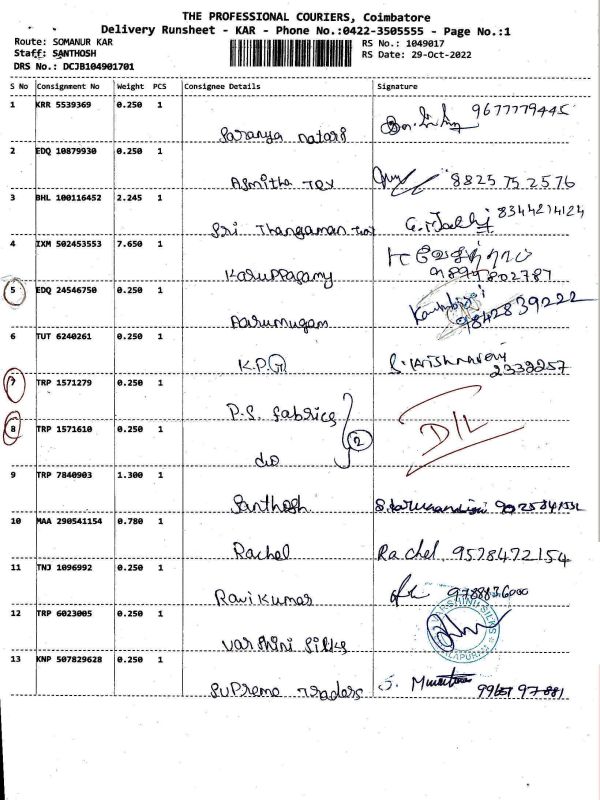 THE PROFESSIONAL COURIERS, Coimbatore
Delivery Runsheet - KAR - Phone No.:0422-3505555 - Page No.:1
Route: SOMANUR KAR RS No.: 1049017
Staff: SANTHOSH RS Date: 29-Oct-2022
DRS No.: DCJB104901701
S No Consignment No Weight PCS Consignee Details Signature
1 KRR 5539369 0.250 1
9677779445
Saranya
2 EDQ 10879930 0.250 1
Asmitha Tex 8825752576
3 BHL 100116452 2.245 1
8344214124
Sri Thangaman
4 IXM 502453553 7.650 1
Karuppasamy
5 EDQ 24546750 0.250 1
9842839222
Aarumugam
6 TUT 6240261 0.250 1
K.P.G
2332257
7 TRP 1571279 0.250 1
P.S. fabrics
8 TRP 1571610 0.250 1
2 D/L
do
9 TRP 7840903 1.300 1
Santhosh
10 MAA 290541154 0.780 1
Rachel Rachel 9578472154
11 TNJ 1096992 0.250 1
Ravikumar
12 TRP 6023005 0.250 1
VARSHINI SILKS
Varshini Silks
13 KNP 507829628 0.250 1
Supreme Traders S.